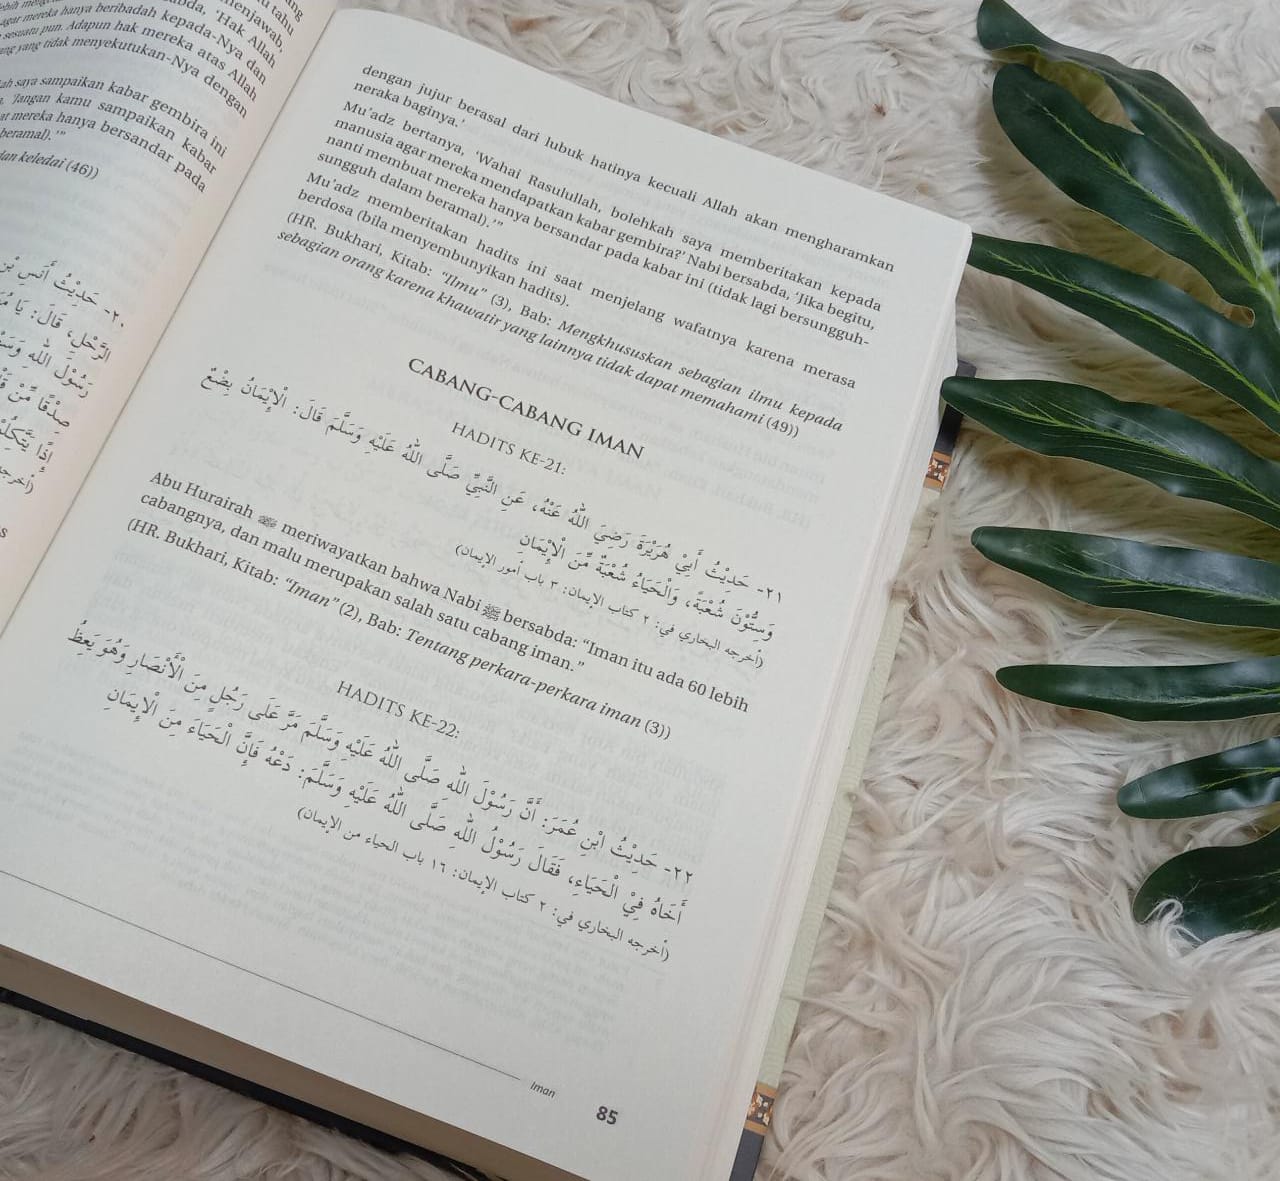 menjawab,
bersabda, 'Hak Allah
agar mereka hanya beribadah kepada-Nya dan
sesuatu pun. Adapun hak mereka atas Allah
yang tidak menyekutukan-Nya dengan
saya sampaikan kabar gembira ini
'Jangan kamu sampaikan kabar
mereka hanya bersandar pada
beramal).'"
dan keledai (46))
٢٠- حَدِيْثُ أَنَسِ بْنِ
الرَّحْلِ، قَالَ: يَا
رَسُوْلَ اللهِ
صِدْقًا مِّنْ
إِذًا يَتَّكِلُوْا
dengan jujur berasal dari lubuk hatinya kecuali Allah akan mengharamkan
neraka baginya.'
Mu'adz bertanya, 'Wahai Rasulullah, bolehkah saya memberitakan kepada
manusia agar mereka mendapatkan kabar gembira?' Nabi bersabda, 'Jika begitu,
nanti membuat mereka hanya bersandar pada kabar ini (tidak lagi bersungguh-
sungguh dalam beramal).'"
Mu'adz memberitakan hadits ini saat menjelang wafatnya karena merasa
berdosa (bila menyembunyikan hadits).
(HR. Bukhari, Kitab: "Ilmu" (3), Bab: Mengkhususkan sebagian ilmu kepada
sebagian orang karena khawatir yang lainnya tidak dapat memahami (49))
CABANG-CABANG IMAN
HADITS KE-21:
٢١- حَدِيْثُ أَبِيْ هُرَيْرَةَ رَضِيَ اللهُ عَنْهُ، عَنِ النَّبِيِّ صَلَّى اللهُ عَلَيْهِ وَسَلَّمَ قَالَ: الْإِيْمَانُ بِضْعٌ
وَسِتُّوْنَ شُعْبَةً، وَالْحَيَاءُ شُعْبَةٌ مِّنَ الْإِيْمَانِ
(أخرجه البخاري في: ٢ كتاب الإيمان: ٣ باب أمور الإيمان)
Abu Hurairah meriwayatkan bahwa Nabi ﷺ bersabda: "Iman itu ada 60 lebih
cabangnya, dan malu merupakan salah satu cabang iman."
(HR. Bukhari, Kitab: "Iman" (2), Bab: Tentang perkara-perkara iman (3))
HADITS KE-22:
٢٢- حَدِيْثُ ابْنِ عُمَرَ: أَنَّ رَسُوْلَ اللهِ صَلَّى اللهُ عَلَيْهِ وَسَلَّمَ مَرَّ عَلَى رَجُلٍ مِنَ الْأَنْصَارِ وَهُوَ يَعِظُ
أَخَاهُ فِيْ الْحَيَاءِ، فَقَالَ رَسُوْلُ اللهِ صَلَّى اللهُ عَلَيْهِ وَسَلَّمَ: دَعْهُ فَإِنَّ الْحَيَاءَ مِنَ الْإِيْمَانِ
(أخرجه البخاري في: ٢ كتاب الإيمان: ١٦ باب الحياء من الإيمان)
Iman
85